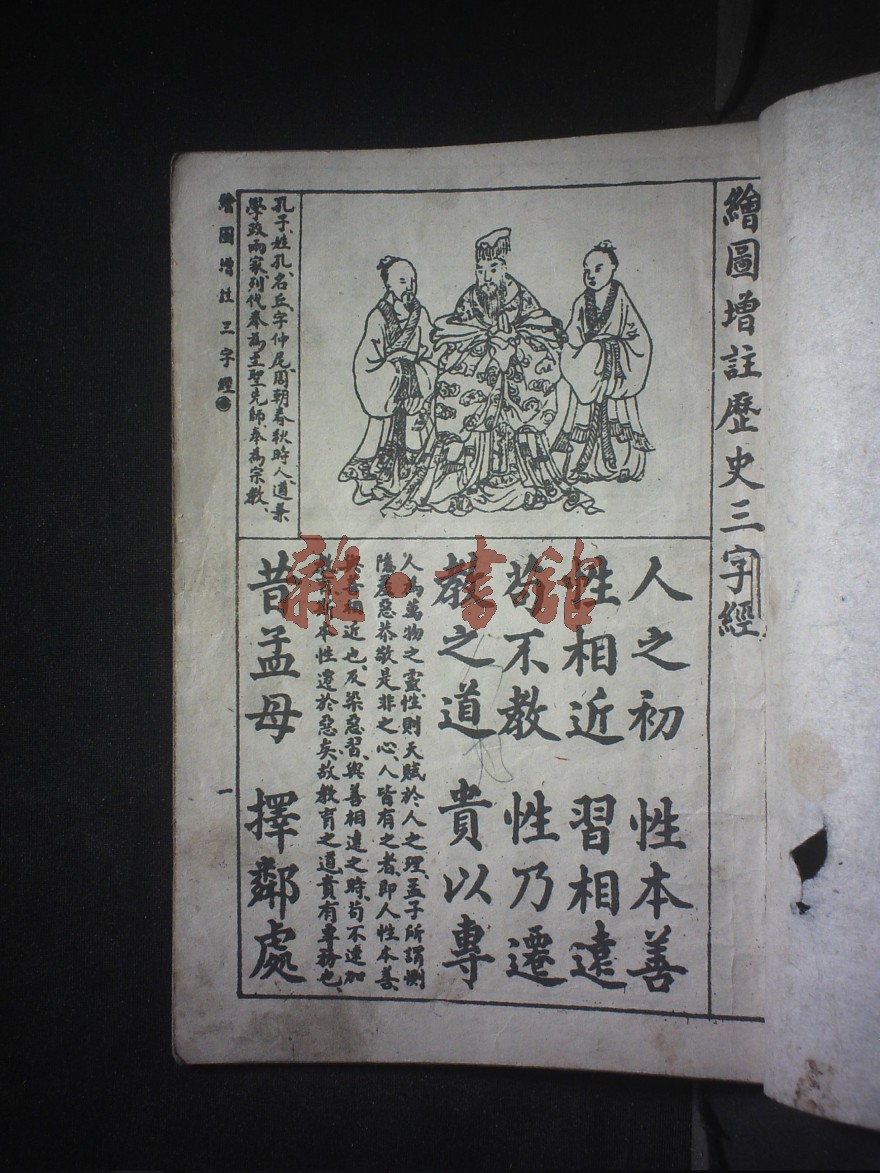 繪圖增註歷史三字經
孔子、姓孔、名丘、字仲尼、周朝春秋時人、道兼
學政兩家、列代奉為至聖先師、奉為宗教、
人之初 性本善
性相近 習相遠
苟不教 性乃遷
教之道 貴以專
人為萬物之靈、性則天賦於人之理、孟子所謂惻
隱羞惡恭敬是非之心、人皆有之者、即人性本善
相近也、及染惡習、與善相遠之時、苟不速加
本性遷於惡矣、故教育之道、貴有專務也、
昔孟母 擇鄰處
繪圖增註三字經
一
雜·書館